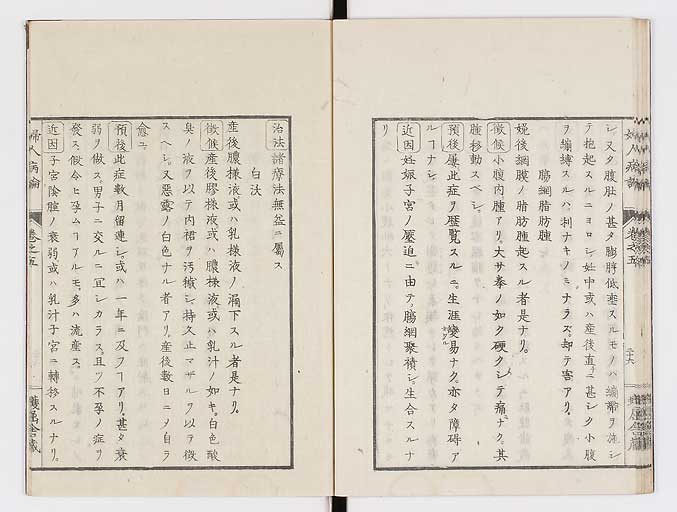 シ。又タ腹肚ノ甚タ膨脖低垂スルモノハ繃帶ヲ施シ
テ抱起スルニヨロシ妊中或ハ産後直ニ甚シク小腹
ヲ繃縛スルハ利ナキノミナラズ。却テ害アリ。
腸網脂肪腫
娩後網膜ノ脂肪腫起スル者是ナリ。
徴候小腹肉腫アリ。大サ拳ノ如ク硬クシテ痛ナク。其
腫移動スベシ。
預後屢此症ヲ歴覧スルニ。生涯變易ナク。亦タ障碍ア
ルヿナシ
近因妊娠子宮ノ壓迫ニ由テ。腸網聚積シ。生合スルナ
リ
婦人病論
卷之五
治法諸療法無益ニ屬ス
白汏
産後膿様液或ハ乳様液ノ漏下スル者是ナリ。
徴候産後膠様液或ハ膿様液或ハ乳汁ノ如キ。白色酸
臭ノ液ヲ以テ内裙ヲ汚穢シ。持久止マザルヲ以テ徴
スベシ。又惡露ノ白色ナル者アリ。産後數日ニメ自ラ
愈ユ
預後此症數月留連シ。或ハ一年ニ及フヿアリ。甚タ衰
弱ヲ做ス。男子ニ交ルニ冝シカラス。且ツ不孕ノ症ヲ
發ス假令ヒ孕ムヿアルモ。多ハ流産ス。
近因子宮陰膣ノ衰弱或ハ乳汁子宮ニ轉移スルナリ。
婦人病論
卷之五